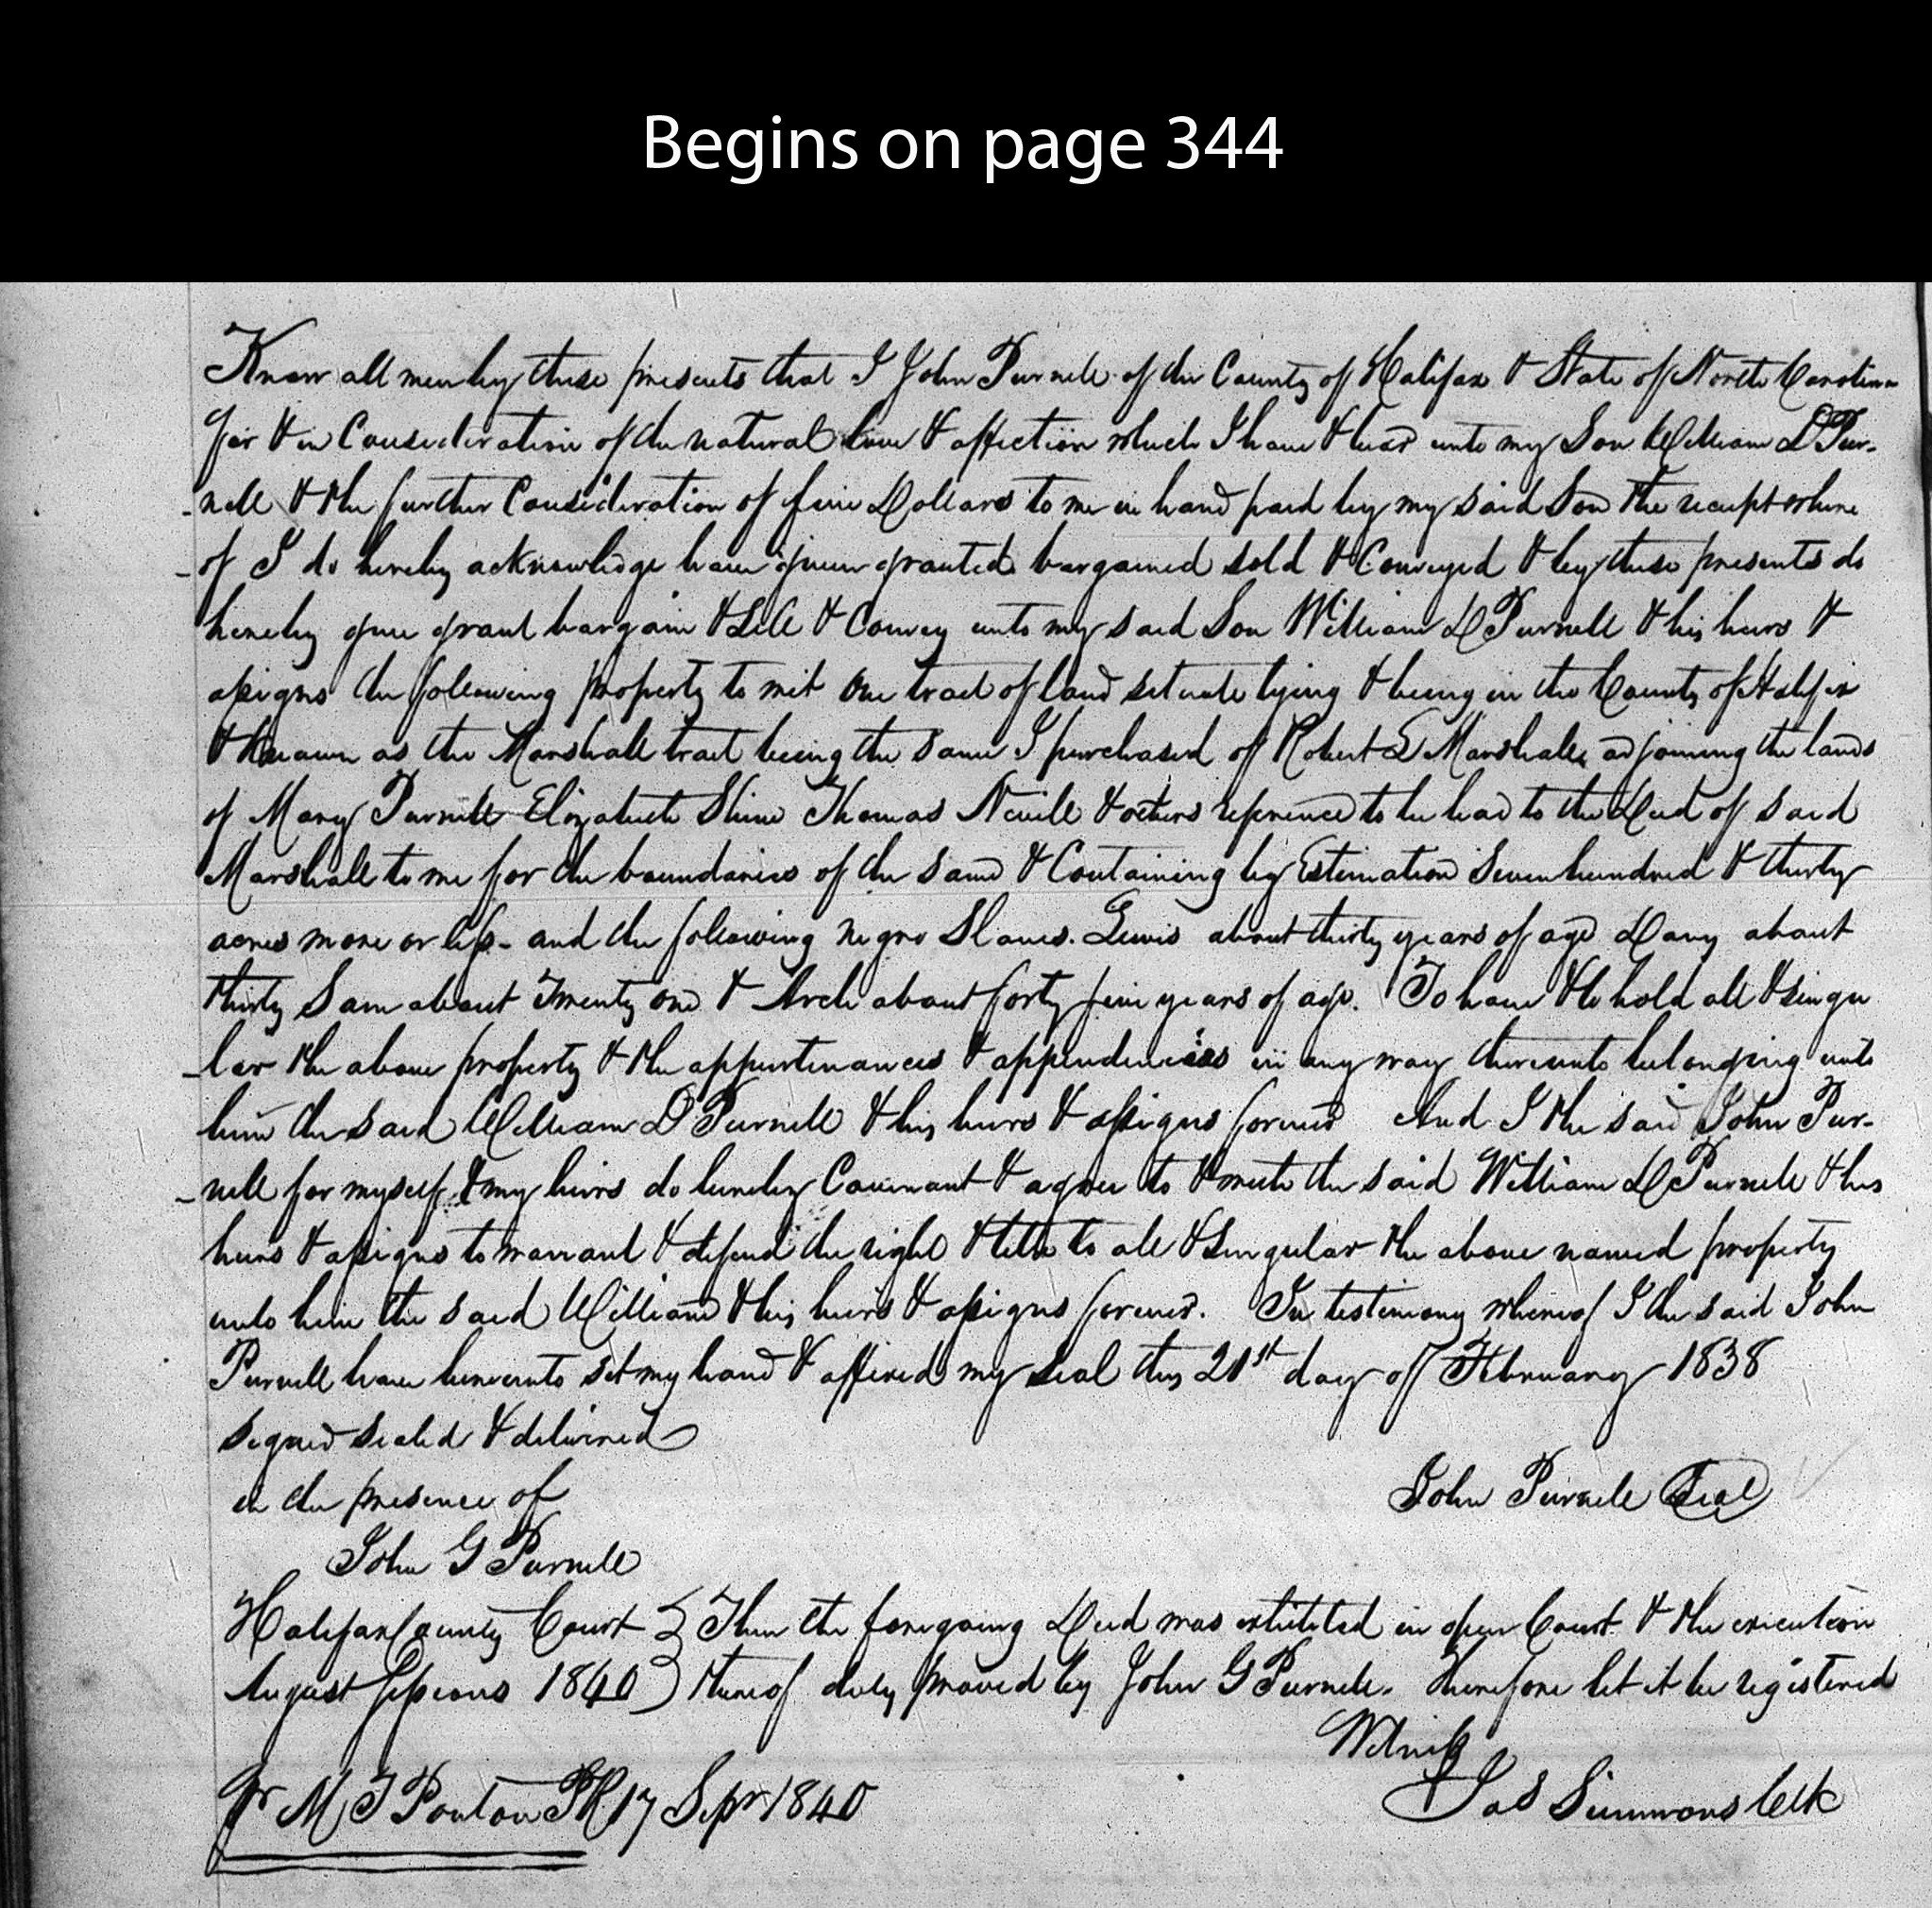 Begins on page 344
Know all men by these presents that I John Purnell of the County of Halifax & State of North Carolina
for & in Consideration of the natural love & affection which I have & bear unto my Son William D Pur-
-nell & the further Consideration of five Dollars to me in hand paid by my said Son the receipt where
-of I do hereby acknowledge have given granted bargained sold & Conveyed & by these presents do
hereby give grant bargain & Sell & Convey unto my said Son William D Purnell & his heirs &
assigns the following property to wit One tract of land situate lying & being in the County of Halifax
& known as the Marshall tract being the same I purchased of Robert D Marshall, adjoining the lands
of Mary Purnell Elizabeth Shine Thomas Nevill & others reference to be had to the Deed of said
Marshall to me for the boundaries of the same & Containing by Estimation Seven hundred & thirty
acres more or less - and the following negro Slaves. Lewis about thirty years of age Davy about
thirty Sam about Twenty one & Arch about forty five years of age. To have & to hold all & singu
-lar the above property & the appurtenances & appendencies in any way thereunto belonging unto
him the said William D Purnell & his heirs & assigns forever And I the said John Pur-
-nell for myself & my heirs do hereby Covenant & agree to & with the said William D Purnell & his
heirs & assigns to warrant & defend the right & title to all & Singular the above named property
unto him the said William & his heirs & assigns forever. In testimony whereof I the said John
Purnell have hereunto set my hand & affixed my seal this 21st day of February 1838
signed sealed & delivered
in the presence of
John Purnell Seal
John G Purnell
Halifax County Court } Then the foregoing Deed was exhibited in open Court & the execution
August Sessions 1840 } thereof duly proved by John G Purnell. Therefore let it be registered
Witness
pr M T Ponton PR 17 Sepr 1840
Jas Simmons Clk